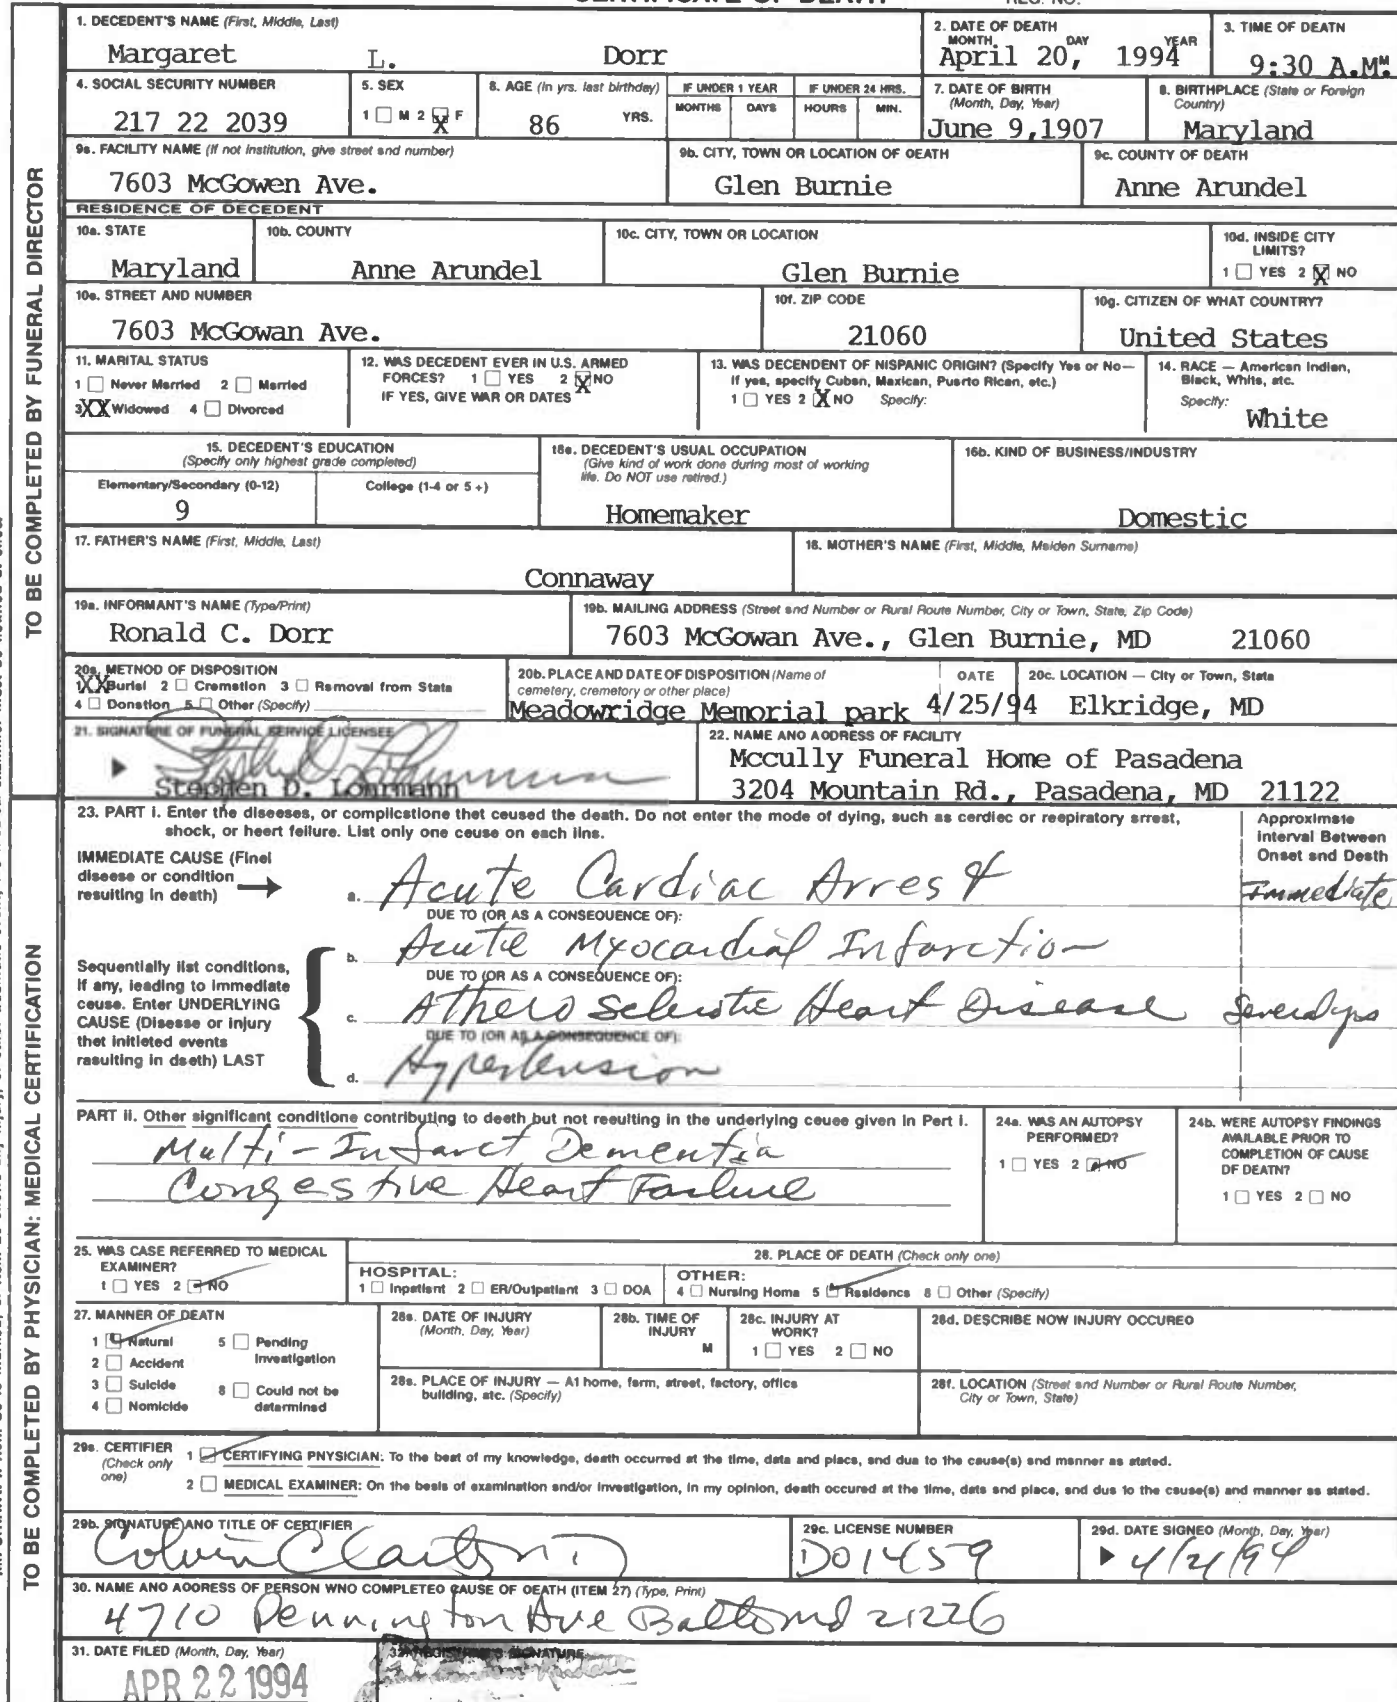 1. DECEDENT'S NAME (First, Middle, Last)
Margaret L. Dorr
2. DATE OF DEATH
MONTH DAY YEAR
April 20, 1994
3. TIME OF DEATN
9:30 A.M.M
4. SOCIAL SECURITY NUMBER
217 22 2039
5. SEX
1 M 2 X F
8. AGE (In yrs. last birthday)
86 YRS.
IF UNDER 1 YEAR
MONTHS DAYS
IF UNDER 24 HRS.
HOURS MIN.
7. DATE OF BIRTH
(Month, Day, Year)
June 9,1907
8. BIRTHPLACE (State or Foreign
Country)
Maryland
9a. FACILITY NAME (If not institution, give street and number)
7603 McGowen Ave.
9b. CITY, TOWN OR LOCATION OF DEATH
Glen Burnie
9c. COUNTY OF DEATH
Anne Arundel
RESIDENCE OF DECEDENT
10a. STATE
Maryland
10b. COUNTY
Anne Arundel
10c. CITY, TOWN OR LOCATION
Glen Burnie
10d. INSIDE CITY
LIMITS?
1 YES 2 X NO
10e. STREET AND NUMBER
7603 McGowan Ave.
10f. ZIP CODE
21060
10g. CITIZEN OF WHAT COUNTRY?
United States
11. MARITAL STATUS
1 Never Married 2 Married
3 XX Widowed 4 Divorced
12. WAS DECEDENT EVER IN U.S. ARMED
FORCES? 1 YES 2 X NO
IF YES, GIVE WAR OR DATES
13. WAS DECENDENT OF NISPANIC ORIGIN? (Specify Yes or No—
If yes, specify Cuban, Mexican, Puerto Rican, etc.)
1 YES 2 X NO Specify:
14. RACE — American Indian,
Black, White, etc.
Specify:
White
15. DECEDENT'S EDUCATION
(Specify only highest grade completed)
Elementary/Secondary (0-12)
9
College (1-4 or 5+)
16a. DECEDENT'S USUAL OCCUPATION
(Give kind of work done during most of working
life. Do NOT use retired.)
Homemaker
16b. KIND OF BUSINESS/INDUSTRY
Domestic
17. FATHER'S NAME (First, Middle, Last)
Connaway
18. MOTHER'S NAME (First, Middle, Maiden Surname)
19a. INFORMANT'S NAME (Type/Print)
Ronald C. Dorr
19b. MAILING ADDRESS (Street and Number or Rural Route Number, City or Town, State, Zip Code)
7603 McGowan Ave., Glen Burnie, MD 21060
20a. METNOD OF DISPOSITION
1 XX Burial 2 Cremation 3 Removal from State
4 Donation 5 Other (Specify)
20b. PLACE AND DATE OF DISPOSITION (Name of
cemetery, crematory or other place)
Meadowridge Memorial park
DATE
4/25/94
20c. LOCATION — City or Town, State
Elkridge, MD
21. SIGNATURE OF FUNERAL SERVICE LICENSEE
Stephen D. Lohrmann
22. NAME AND ADDRESS OF FACILITY
Mccully Funeral Home of Pasadena
3204 Mountain Rd., Pasadena, MD 21122
23. PART I. Enter the diseases, or complications that caused the death. Do not enter the mode of dying, such as cardiac or respiratory arrest,
shock, or heart failure. List only one cause on each line.
Approximate
Interval Between
Onset and Death
IMMEDIATE CAUSE (Final
disease or condition
resulting in death)
a. Acute Cardiac Arrest Immediate
DUE TO (OR AS A CONSEQUENCE OF):
b. Acute Myocardial Infarction
DUE TO (OR AS A CONSEQUENCE OF):
c. Athero Sclerotic Heart Disease Several yrs
DUE TO (OR AS A CONSEQUENCE OF):
d. Hypertension
Sequentially list conditions,
If any, leading to immediate
cause. Enter UNDERLYING
CAUSE (Disease or injury
that initiated events
resulting in death) LAST
PART II. Other significant conditions contributing to death but not resulting in the underlying cause given in Part I.
Multi-Infarct Dementia
Congestive Heart Failure
24a. WAS AN AUTOPSY
PERFORMED?
1 YES 2 NO
24b. WERE AUTOPSY FINDINGS
AVAILABLE PRIOR TO
COMPLETION OF CAUSE
OF DEATN?
1 YES 2 NO
25. WAS CASE REFERRED TO MEDICAL
EXAMINER?
1 YES 2 NO
26. PLACE OF DEATH (Check only one)
HOSPITAL:
1 Inpatient 2 ER/Outpatient 3 DOA
OTHER:
4 Nursing Home 5 Residence 8 Other (Specify)
27. MANNER OF DEATN
1 Natural 5 Pending
Investigation
2 Accident
3 Suicide 8 Could not be
determined
4 Nomicide
28a. DATE OF INJURY
(Month, Day, Year)
28b. TIME OF
INJURY
M
28c. INJURY AT
WORK?
1 YES 2 NO
28d. DESCRIBE NOW INJURY OCCURED
28e. PLACE OF INJURY — At home, farm, street, factory, office
building, etc. (Specify)
28f. LOCATION (Street and Number or Rural Route Number,
City or Town, State)
29a. CERTIFIER
(Check only
one)
1 CERTIFYING PNYSICIAN: To the best of my knowledge, death occurred at the time, date and place, and due to the cause(s) and manner as stated.
2 MEDICAL EXAMINER: On the basis of examination and/or investigation, in my opinion, death occured at the time, date and place, and due to the cause(s) and manner as stated.
29b. SIGNATURE AND TITLE OF CERTIFIER
29c. LICENSE NUMBER
D01459
29d. DATE SIGNED (Month, Day, Year)
4/21/94
30. NAME AND ADDRESS OF PERSON WNO COMPLETED CAUSE OF DEATH (ITEM 27) (Type, Print)
4710 Pennington Ave Balto md 21226
31. DATE FILED (Month, Day, Year)
APR 22 1994
32. REGISTRAR'S SIGNATURE
TO BE COMPLETED BY FUNERAL DIRECTOR
TO BE COMPLETED BY PHYSICIAN: MEDICAL CERTIFICATION